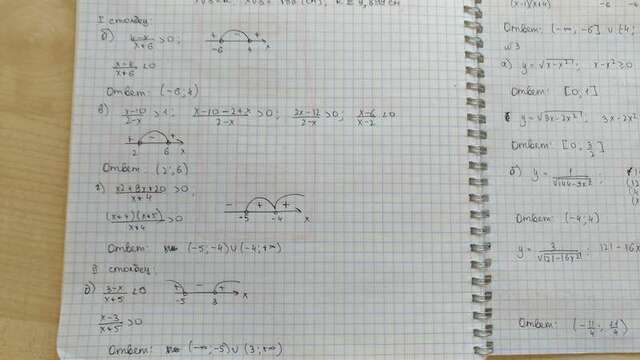 I столбец:
б) (4-x)/(x+6) >0; + -6 - 4 + x
(x-4)/(x+6) <0
Ответ: (-6;4)
в) (x-10)/(2-x) >1; (x-10-2+x)/(2-x) >0; (2x-12)/(2-x) >0; (x-6)/(x-2) <0
+ 2 - 6 + x
Ответ: (2;6)
г) (x2+9x+20)/(x+4) >0; - -5 + -4 + x
((x+4)(x+5))/(x+4) >0
Ответ: (-5;-4)∪(-4;+∞)
II столбец:
а) (3-x)/(x+5) <0 + -5 - 3 + x
(x-3)/(x+5) >0
Ответ: (-∞;-5)∪(3;+∞)
(x-1)(x+4)
Ответ: (-∞;-6]∪(-4;
№3
а) y=√(x-x²); x-x²≥0
Ответ: [0;1]
y=√(3x-2x²); 3x-2x²
Ответ: [0; 3/2]
б) y= 1/√(144-9x²)
Ответ: (-4;4)
y= 3/√(121-16x²); 121-16x
Ответ: (-11/4; 11/4)